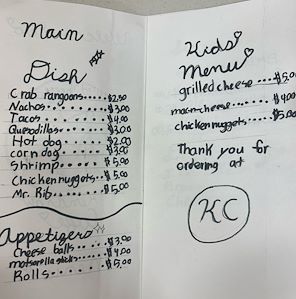 Main
Dish
Crab rangoons....$2.50
Nachos.....$3.00
Tacos.....$4.00
Quesodillas....$3.00
Hot dog.....$2.00
corn dog....$3.00
shrimp....$5.00
Chicken nuggets..$5.00
Mr. Rib.....$5.00
Appetizers
Cheese balls....$3.00
motsarella sticks...$4.00
Rolls.....$5.00
Kids
Menu
grilled cheese....$5.00
mac n cheese....$4.00
chicken nuggets....$5.00
Thank you for
ordering at
KC